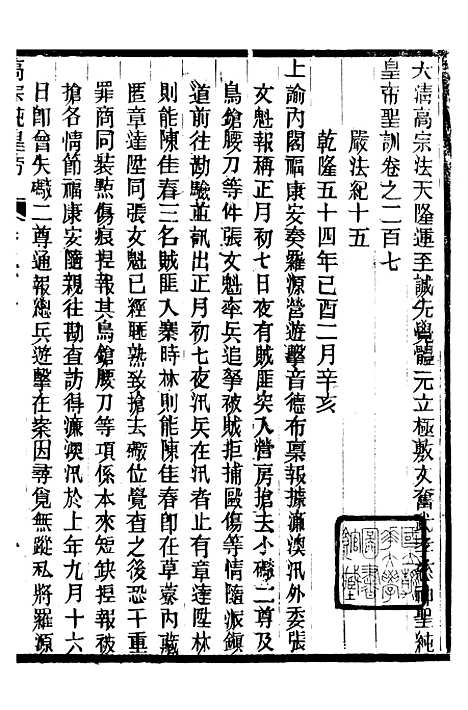 大清高宗法天隆運至誠先覺體元立極敷文奮武孝慈神聖純
皇帝聖訓卷之二百七
嚴法紀十五
乾隆五十四年己酉二月辛亥
上諭內閣福康安奏羅源營遊擊音德布稟報據濂澳汛外委張
文魁報稱正月初七日夜有賊匪突入營房搶去小礮二尊
鳥鎗腰刀等件張文魁率兵追拏被賊拒捕毆傷等情隨派鎮
道前往勘驗並訊出正月初七夜汛兵在汛者止有章達陞林
則能陳佳春三名賊匪入寨時林則能陳佳春即在草藔內藏
匿章達陞同張文魁已經睡熟致搶去礮位覺查之後恐干重
罪商同裝點傷痕捏報其鳥鎗腰刀等項係本來短缺捏報被
搶各情節福康安隨親往勘查訪得濂澳汛於上年九月十六
日即曾失礮二尊通報總兵遊擊在案因尋覓無蹤私將羅源
高宗純皇帝